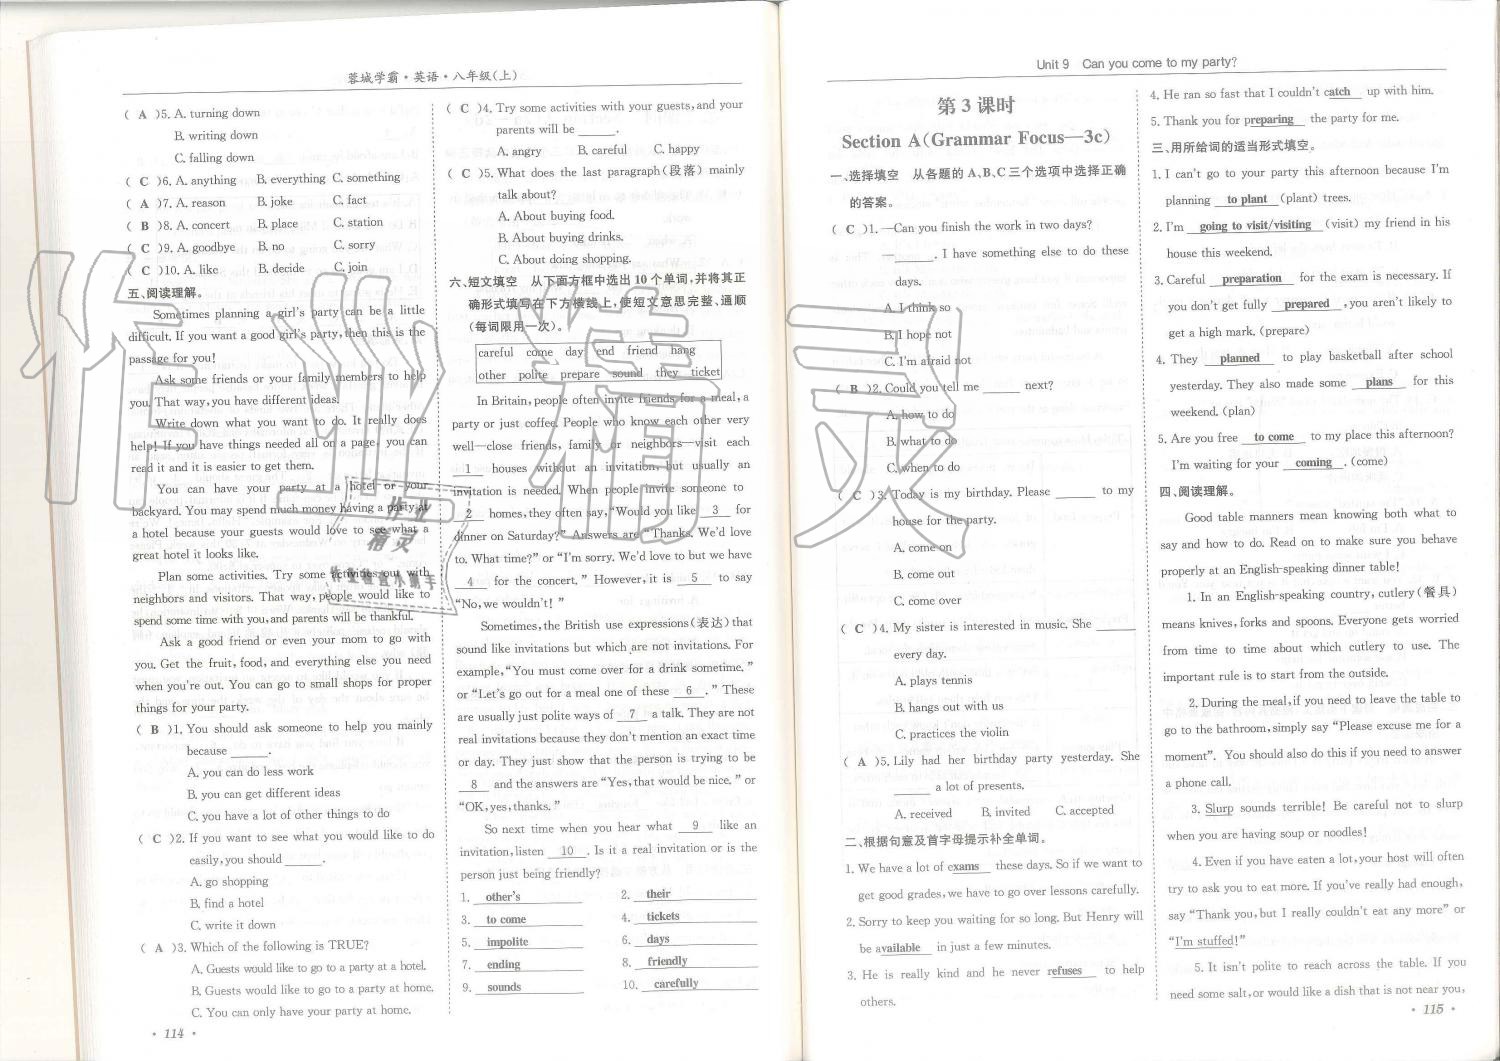 蓉城学霸·英语·八年级(上)
( A )5. A. turning down
B. writing down
C. falling down
( C )6. A. anything B. everything C. something
( A )7. A. reason B. joke C. fact
( B )8. A. concert B. place C. station
( C )9. A. goodbye B. no C. sorry
( C )10. A. like B. decide C. join
五、阅读理解。
Sometimes planning a girl's party can be a little
difficult. If you want a good girl's party, then this is the
passage for you!
Ask some friends or your family members to help
you. That way, you have different ideas.
Write down what you want to do. It really does
help! If you have things needed all on a page, you can
read it and it is easier to get them.
You can have your party at a hotel or your
backyard. You may spend much money having a party at
a hotel because your guests would love to see what a
great hotel it looks like.
Plan some activities. Try some activities out with
neighbors and visitors. That way, people would like to
spend some time with you, and parents will be thankful.
Ask a good friend or even your mom to go with
you. Get the fruit, food, and everything else you need
when you're out. You can go to small shops for proper
things for your party.
( B )1. You should ask someone to help you mainly
because ______.
A. you can do less work
B. you can get different ideas
C. you have a lot of other things to do
( C )2. If you want to see what you would like to do
easily, you should ______.
A. go shopping
B. find a hotel
C. write it down
( A )3. Which of the following is TRUE?
A. Guests would like to go to a party at a hotel.
B. Guests would like to go to a party at home.
C. You can only have your party at home.
· 114 ·
( C )4. Try some activities with your guests, and your
parents will be ______.
A. angry B. careful C. happy
( C )5. What does the last paragraph(段落) mainly
talk about?
A. About buying food.
B. About buying drinks.
C. About doing shopping.
六、短文填空 从下面方框中选出 10 个单词,并将其正
确形式填写在下方横线上,使短文意思完整、通顺
(每词限用一次)。
careful come day end friend hang
other polite prepare sound they ticket
In Britain, people often invite friends for a meal, a
party or just coffee. People who know each other very
well—close friends, family or neighbors—visit each
1 houses without an invitation, but usually an
invitation is needed. When people invite someone to
2 homes, they often say, "Would you like 3 for
dinner on Saturday?" Answers are "Thanks. We'd love
to. What time?" or "I'm sorry. We'd love to but we have
4 for the concert." However, it is 5 to say
"No, we wouldn't!"
Sometimes, the British use expressions(表达) that
sound like invitations but which are not invitations. For
example, "You must come over for a drink sometime."
or "Let's go out for a meal one of these 6 ." These
are usually just polite ways of 7 a talk. They are not
real invitations because they don't mention an exact time
or day. They just show that the person is trying to be
8 and the answers are "Yes, that would be nice." or
"OK, yes, thanks."
So next time when you hear what 9 like an
invitation, listen 10 . Is it a real invitation or is the
person just being friendly?
1. other's 2. their
3. to come 4. tickets
5. impolite 6. days
7. ending 8. friendly
9. sounds 10. carefully
Unit 9 Can you come to my party?
第 3 课时
Section A(Grammar Focus—3c)
一、选择填空 从各题的 A、B、C 三个选项中选择正确
的答案。
( C )1. —Can you finish the work in two days?
—______. I have something else to do these
days.
A. I think so
B. I hope not
C. I'm afraid not
( B )2. Could you tell me ______ next?
A. how to do
B. what to do
C. when to do
( C )3. Today is my birthday. Please ______ to my
house for the party.
A. come on
B. come out
C. come over
( C )4. My sister is interested in music. She ______
every day.
A. plays tennis
B. hangs out with us
C. practices the violin
( A )5. Lily had her birthday party yesterday. She
______ a lot of presents.
A. received B. invited C. accepted
二、根据句意及首字母提示补全单词。
1. We have a lot of exams these days. So if we want to
get good grades, we have to go over lessons carefully.
2. Sorry to keep you waiting for so long. But Henry will
be available in just a few minutes.
3. He is really kind and he never refuses to help
others.
4. He ran so fast that I couldn't catch up with him.
5. Thank you for preparing the party for me.
三、用所给词的适当形式填空。
1. I can't go to your party this afternoon because I'm
planning to plant (plant) trees.
2. I'm going to visit/visiting (visit) my friend in his
house this weekend.
3. Careful preparation for the exam is necessary. If
you don't get fully prepared , you aren't likely to
get a high mark. (prepare)
4. They planned to play basketball after school
yesterday. They also made some plans for this
weekend. (plan)
5. Are you free to come to my place this afternoon?
I'm waiting for your coming . (come)
四、阅读理解。
Good table manners mean knowing both what to
say and how to do. Read on to make sure you behave
properly at an English-speaking dinner table!
1. In an English-speaking country, cutlery(餐具)
means knives, forks and spoons. Everyone gets worried
from time to time about which cutlery to use. The
important rule is to start from the outside.
2. During the meal, if you need to leave the table to
go to the bathroom, simply say "Please excuse me for a
moment". You should also do this if you need to answer
a phone call.
3. Slurp sounds terrible! Be careful not to slurp
when you are having soup or noodles!
4. Even if you have eaten a lot, your host will often
try to ask you to eat more. If you've really had enough,
say "Thank you, but I really couldn't eat any more" or
"I'm stuffed!"
5. It isn't polite to reach across the table. If you
need some salt, or would like a dish that is not near you,
· 115 ·
作业精灵
作业
精灵